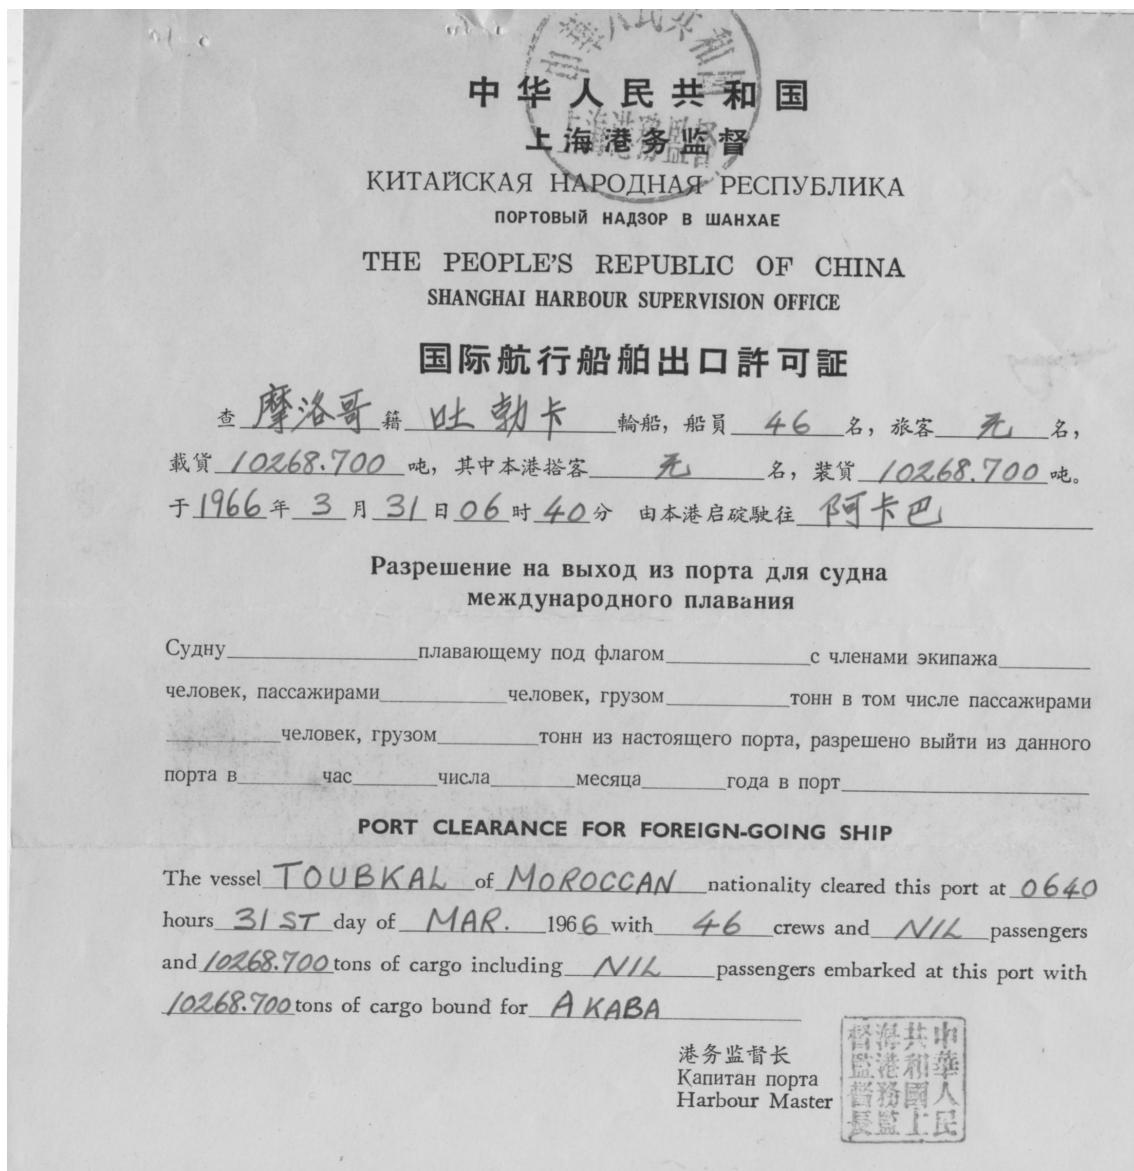 中華人民共和國
上海港務監督
中华人民共和国
上海港务监督
КИТАЙСКАЯ НАРОДНАЯ РЕСПУБЛИКА
ПОРТОВЫЙ НАДЗОР В ШАНХАЕ
THE PEOPLE'S REPUBLIC OF CHINA
SHANGHAI HARBOUR SUPERVISION OFFICE
国际航行船舶出口許可証
查 摩洛哥 籍 吐勃卡 輪船，船員 46 名，旅客 无 名，
載貨 10268.700 吨，其中本港搭客 无 名，装貨 10268.700 吨。
于 1966 年 3 月 31 日 06 时 40 分 由本港启碇駛往 阿卡巴
Разрешение на выход из порта для судна
международного плавания
Судну плавающему под флагом с членами экипажа
человек, пассажирами человек, грузом тонн в том числе пассажирами
человек, грузом тонн из настоящего порта, разрешено выйти из данного
порта в час числа месяца года в порт
PORT CLEARANCE FOR FOREIGN-GOING SHIP
The vessel TOUBKAL of MOROCCAN nationality cleared this port at 0640
hours 31ST day of MAR. 1966 with 46 crews and NIL passengers
and 10268.700 tons of cargo including NIL passengers embarked at this port with
10268.700 tons of cargo bound for AKABA
港务监督长
Капитан порта
Harbour Master
中華人民
共和國上
海港務監
督監督長